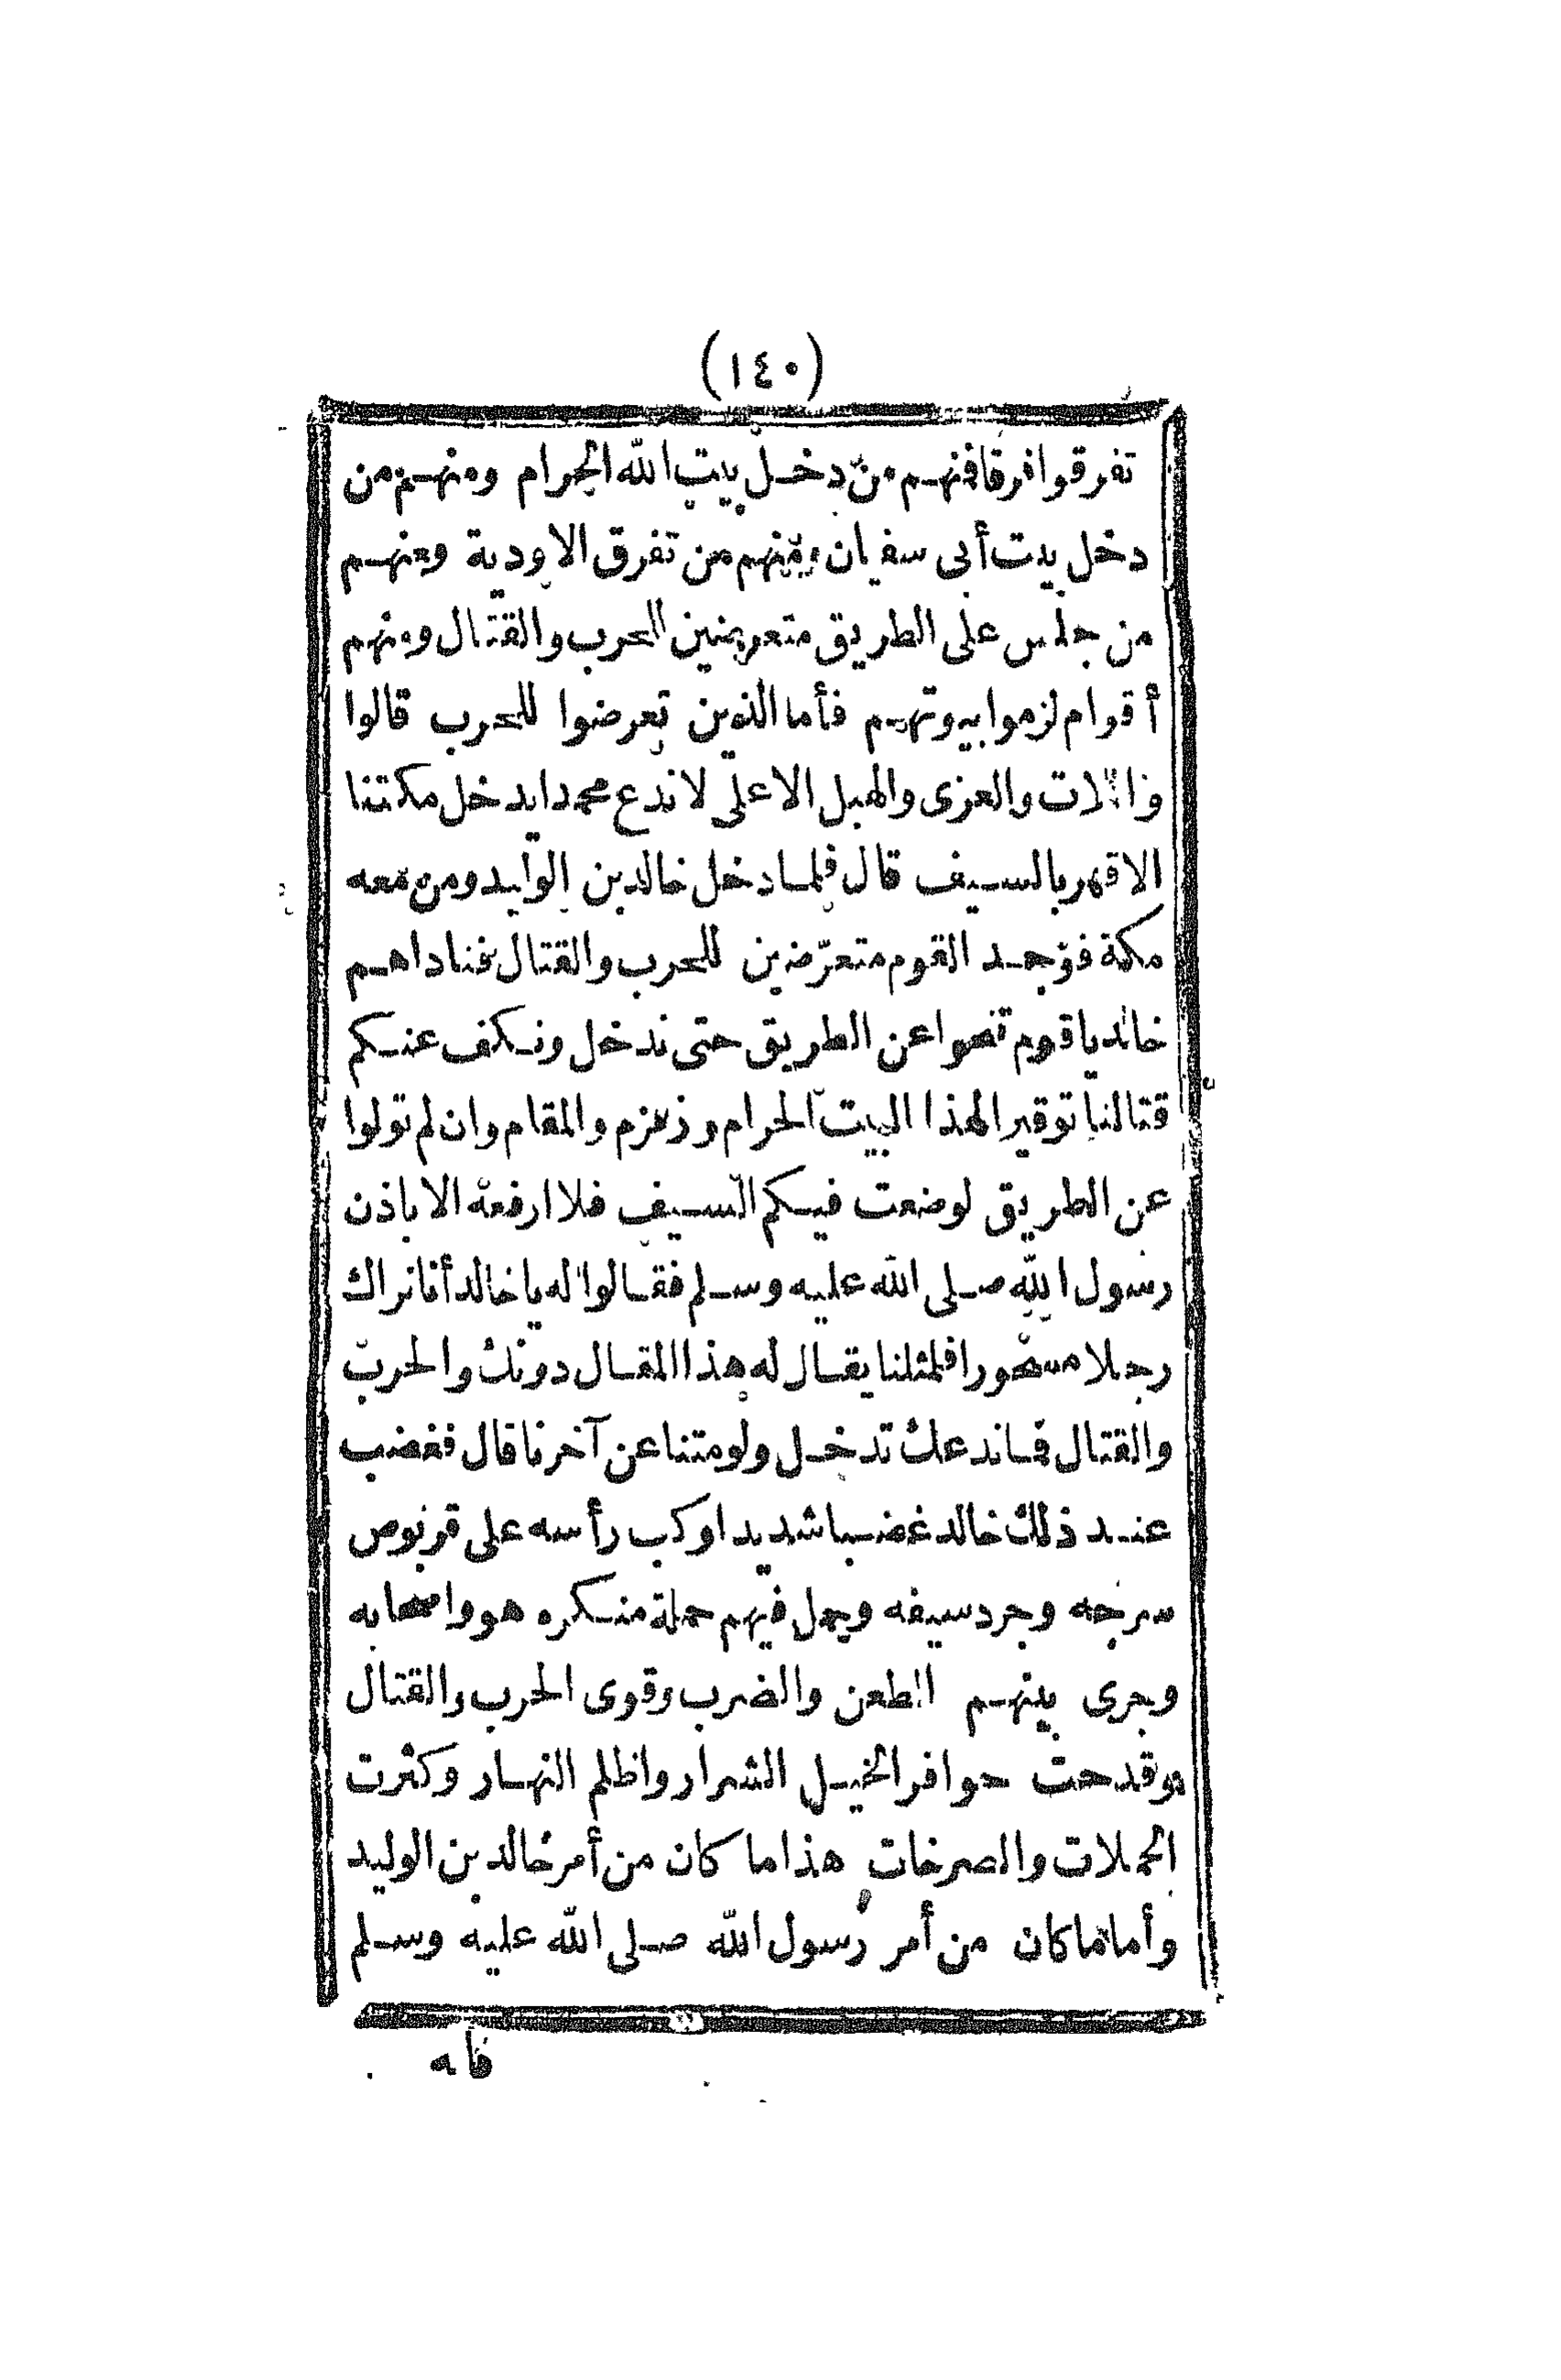 (١٤٠)
تفرقوا فرقا فمنهم من دخل بيت الله الحرام ومنهم من
دخل بيت أبى سفيان ومنهم من تفرق الاودية ومنهم
من جلس على الطريق متعرضين للحرب والقتال ومنهم
أقوام لزموا بيوتهم فأما الذين تعرضوا للحرب قالوا
واللات والعزى والهبل الاعلى لا ندع محمدا يدخل مكتنا
الا قهر بالسيف قال فلما دخل خالد بن الوليد ومن معه
مكة فوجد القوم متعرّضين للحرب والقتال فناداهم
خالد يا قوم تنحوا عن الطريق حتى ندخل ونكف عنكم
قتالنا توقير الهذا البيت الحرام وزمزم والمقام وان لم تولوا
عن الطريق لوضعت فيكم السيف فلا ارفعه الا باذن
رسول الله صلى الله عليه وسلم فقالوا له يا خالد أنا نراك
رجلا مسحورا فلمثلنا يقال له هذا المقال دونك والحرب
والقتال فما ندعك تدخل ولو متنا عن آخرنا قال فغضب
عند ذلك خالد غضبا شديدا وكب رأسه على قربوص
سرجه وجرد سيفه وحمل فيهم حملة منكره هو واصحابه
وجرى بينهم الطعن والضرب وقوى الحرب والقتال
وقدحت حوافر الخيل الشرار واظلم النهار وكثرت
الحملات والصرخات هذا ما كان من أمر خالد بن الوليد
وأما ما كان من أمر رسول الله صلى الله عليه وسلم
فانه